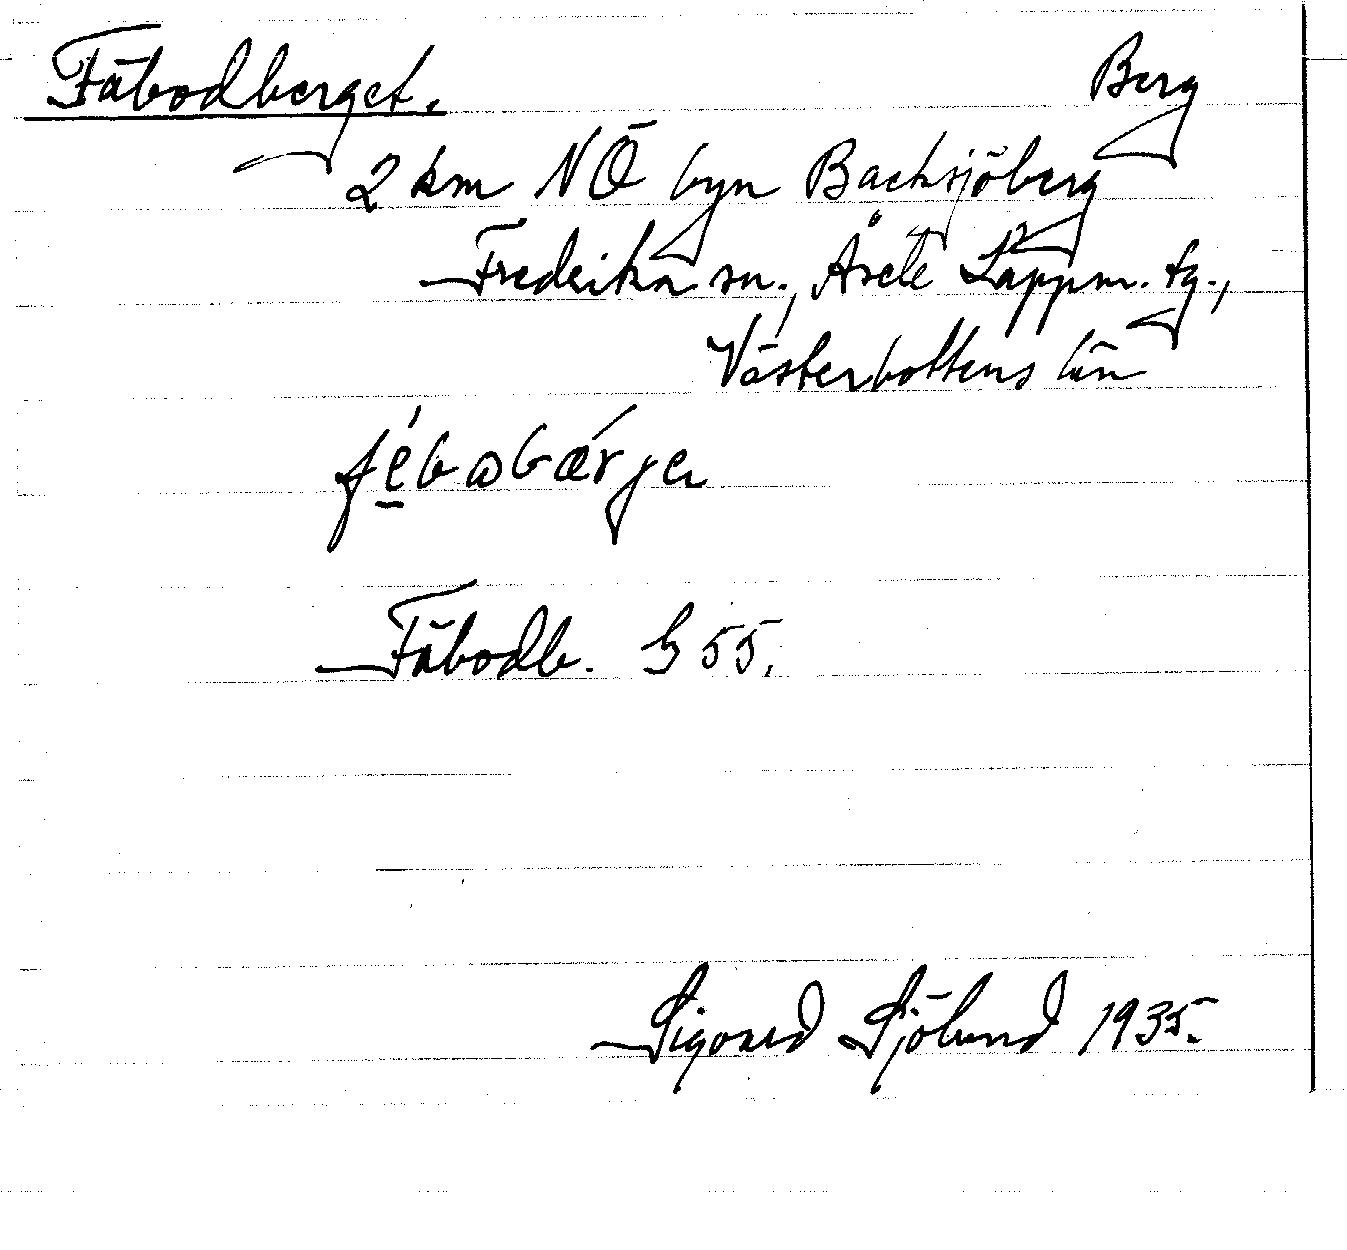 Fäbodberget. Berg
2 km NÖ byn Backsjöberg
Fredrika sn., Åsele Lappm. tg.,
Västerbottens län
fébɷbǽrjer
Fäbodb. G 55.
Sigvard Sjölund 1935.